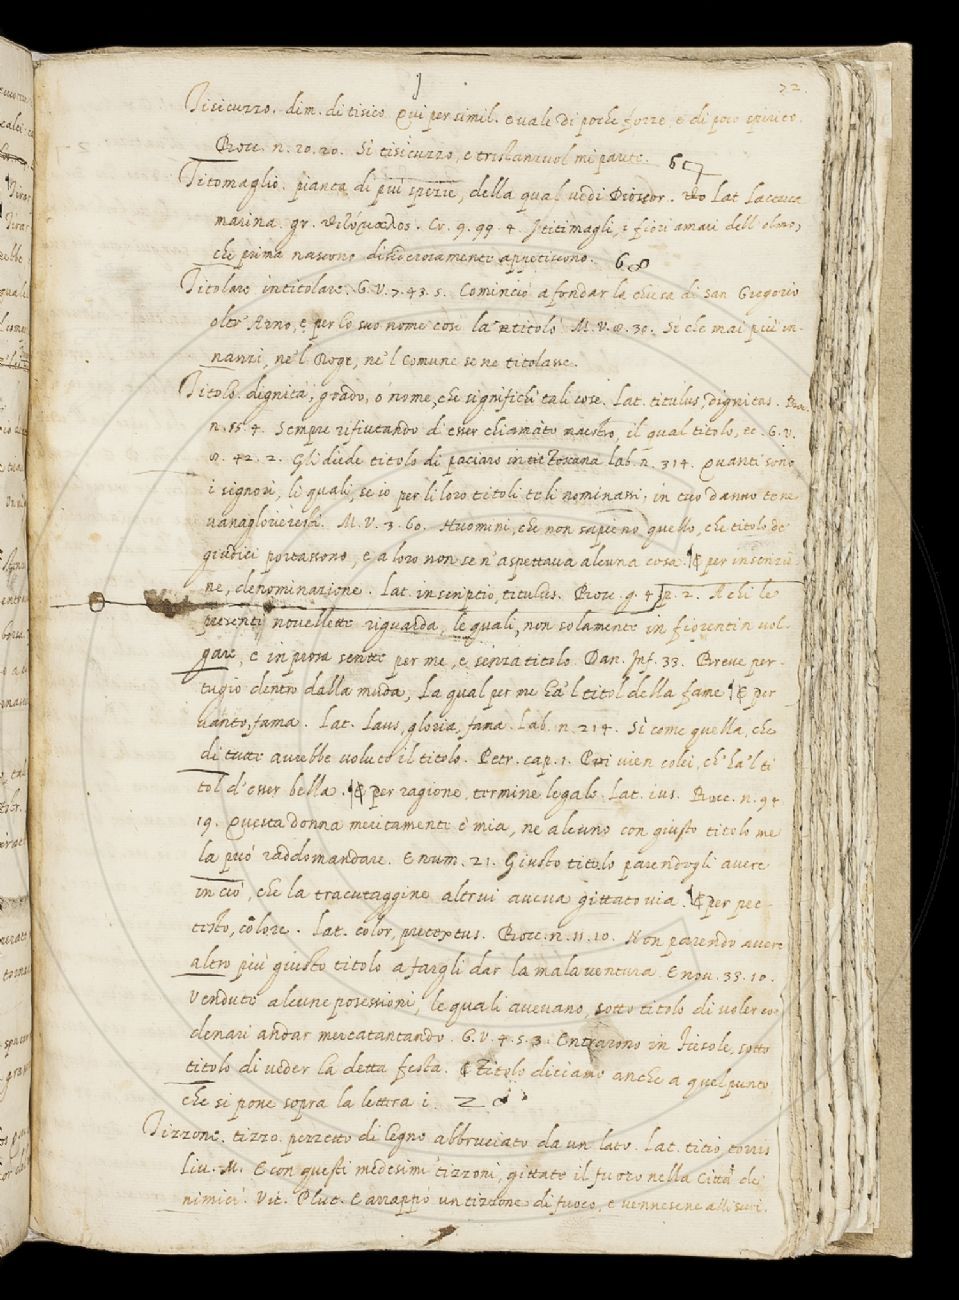 72.
Tisicuzzo. dim. di tisico. Qui per simil. e vale di poche forze, e di poco spirito.
Bocc. n. 20. 20. Sì tisicuzzo, e tristanzuol mi parete.
Titomaglio. pianta di più spezie, della qual vedi Dioscor. Lat. Lactuca
marina. gr. τιθύμαλος. Cr. 9. 99. 4. I titimagli, i fiori amari dell' olmo,
che prima nascono disiderosamente appetiscono.
Titolare intitolare. G. V. 7. 43. 5. Cominciò a fondar la chiesa di San Gregorio
oltr' Arno, e per lo suo nome così la titolò. M. V. 8. 30. Sì che mai più in-
nanzi, ne'l Roge, ne'l Comune se ne titolasse.
Titolo. dignità, grado, o nome, che significhi tali cose. Lat. titulus, dignitas. Bocc.
n. 55. 4. Sempre rifiutando d'esser chiamato maestro, il qual titolo, ec. G. V.
8. 42. 2. Gli diede titolo di paciaro in Toscana Lab. n. 314. Quanti sono
i signori, li quali, se io per li loro titoli te li nominassi, in tuo danno te ne
vanaglorieresti. M. V. 3. 60. Huomini, che non sapieno quello, che titolo de
giudici portassono, e a loro non se n' aspettava alcuna cosa. ¶ per inscrizio-
ne, denominazione. Lat. inscriptio, titulus. Bocc. g. 4. p. 2. A chi le
presenti novellette riguarda, le quali, non solamente in fiorentin vol-
gare, e in prosa scritte per me, e senza titolo. Dan. Inf. 33. Breve per-
tugio dentro dalla muda, La qual per me ha 'l titol della fame. ¶ per
vanto, fama. Lat. Laus, gloria, fama. Lab. n. 214. Sì come quella, che
di tutte avrebbe voluto il titolo. Petr. cap. 1. Poi vien colei, ch' ha 'l ti
tol d' esser bella. ¶ per ragione, termine legale. Lat. ius. Bocc. n. 94
19. Questa donna meritamente è mia, ne alcuno con giusto titolo me
la può raddomandare. E num. 21. Giusto titolo parendogli avere
in ciò, che la tracutaggine altrui aveva gittato via. ¶ per pre-
testo, colore. Lat. color, pretextus. Bocc. n. 11. 10. Non parendo avere
altro più giusto titolo a fargli dar la mala ventura. E nov. 33. 10.
Venduto alcune posessioni, le quali avevano, sotto titolo di voler co'
denari andar mercatantando. G. V. 4. 5. 3. Entrarono in Fiesole, sotto
titolo di veder la detta festa. ¶ Titolo diciamo anche a quel punto
che si pone sopra la lettera i.
Tizzone. tizzo. pezzetto di legno abbruciato da un lato. Lat. titio, torris
Liv. M. E con questi medesimi tizzoni, gittato il fuoco nella Città de
nimici. Vit. Plut. E arrappò un tizzone di fuoco, e vennesene alli suoi.